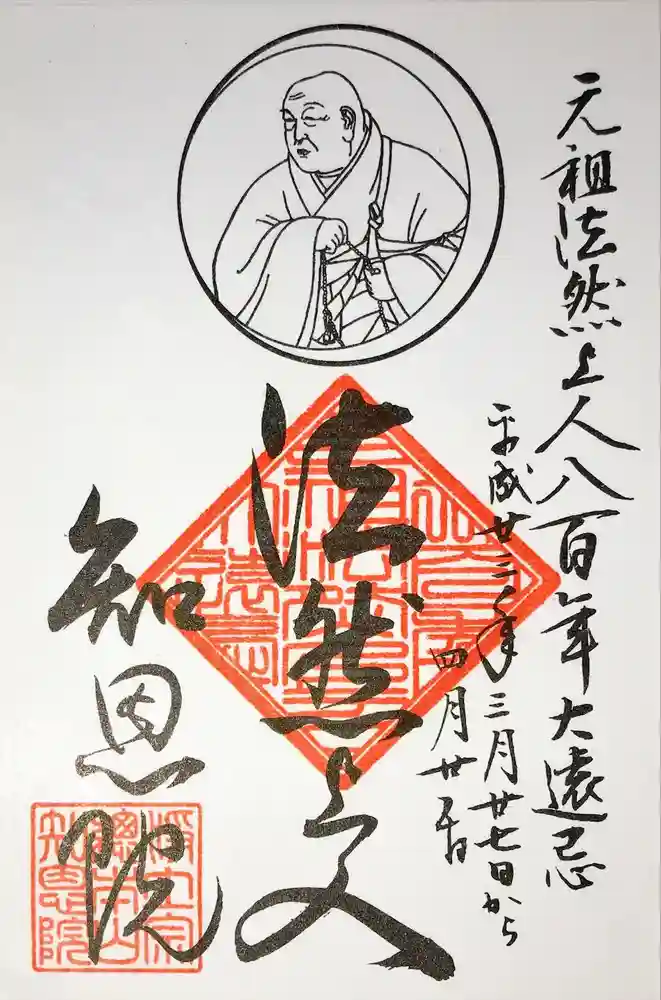 元祖法然上人八百年大遠忌
平成廿三年三月廿七日から
四月廿五日
法然上人
知恩院
浄土宗
總本山
知恩院